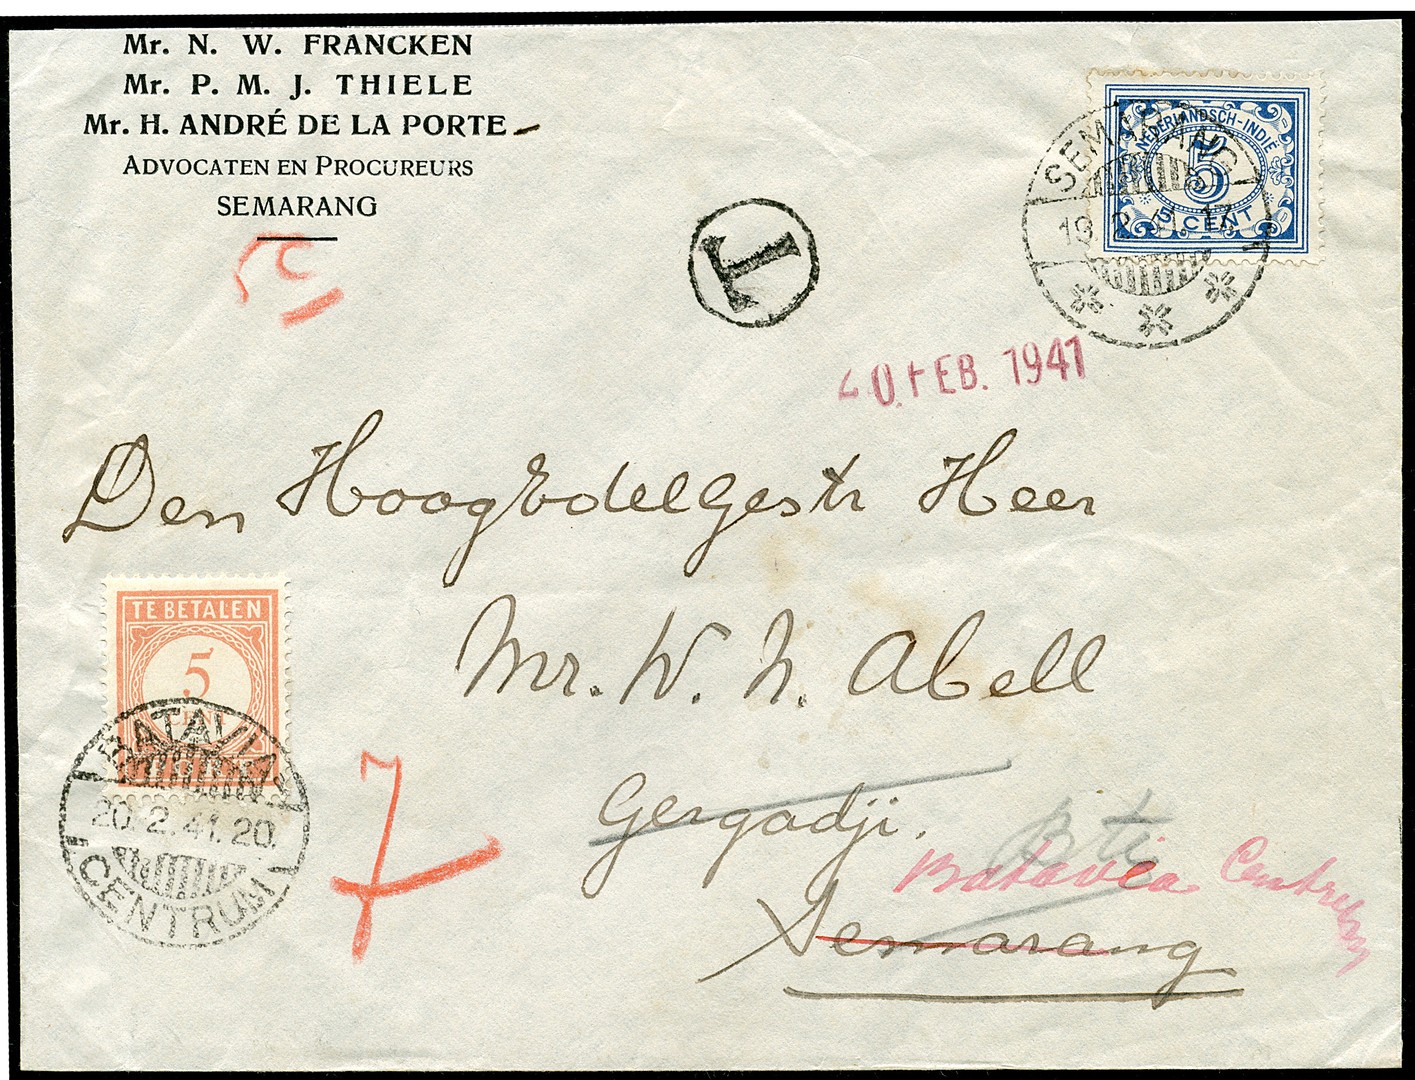 Mr. N. W. FRANCKEN
Mr. P. M. J. THIELE
Mr. H. ANDRÉ DE LA PORTE
ADVOCATEN EN PROCUREURS
SEMARANG
NEDERLANDSCH-INDIE
5
5 CENT
SEMARANG
19.2.41.17
T
20.FEB. 1941
Den HoogEdelGestr Heer
Mr. W. N. Abell
Gergadji.
Btc
Batavia Centrum
Semarang
TE BETALEN
5
CENT
PORT
BATAVIA
20.2.41.20.
CENTRUM
7